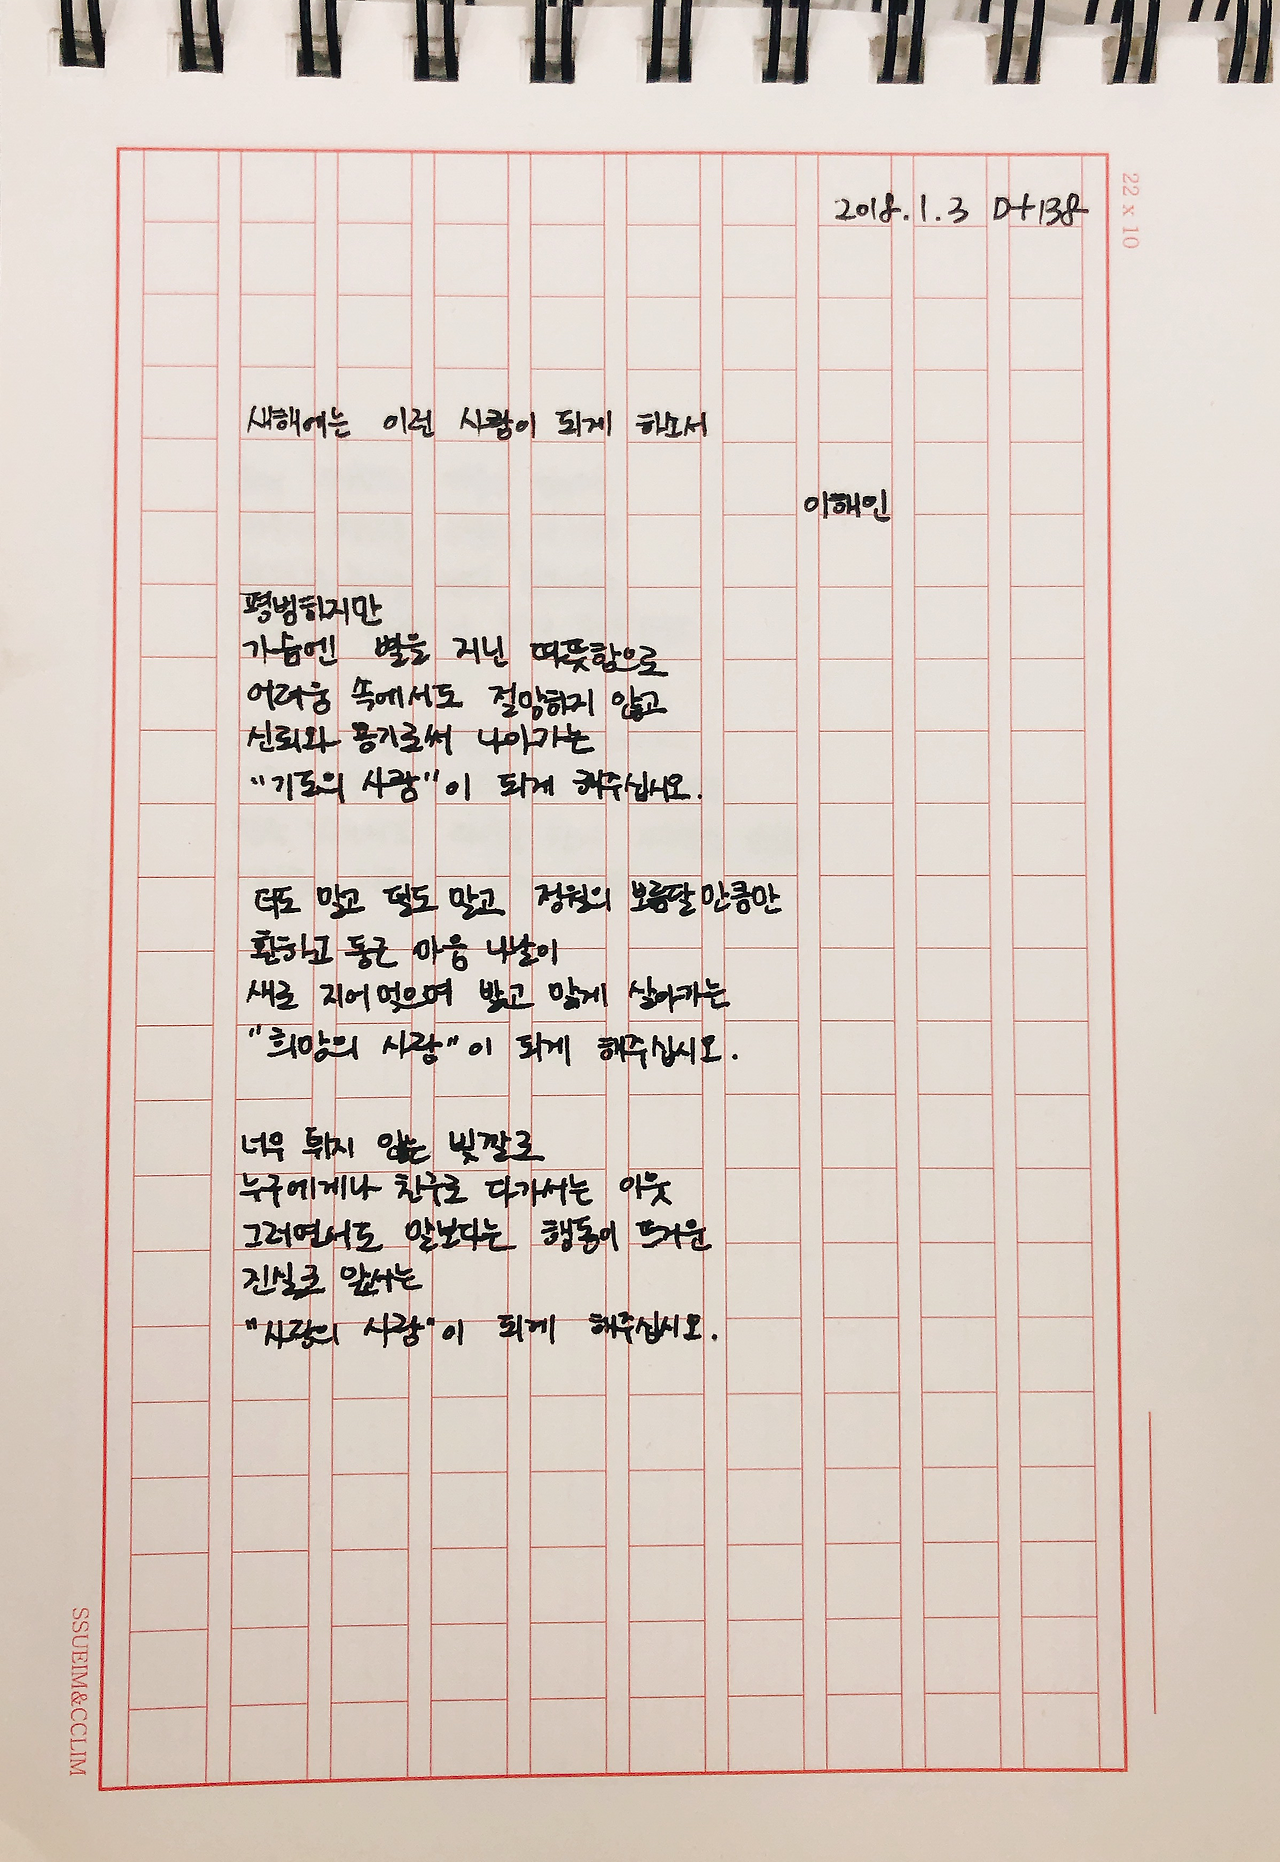 2018.1.3 D+138
22 x 10
새해에는 이런 사람이 되게 하소서
이해인
평범하지만
가슴엔 별을 지닌 따뜻함으로
어려움 속에서도 절망하지 않고
신뢰와 용기로써 나아가는
"기도의 사람"이 되게 해주십시오.
더도 말고 덜도 말고 정월의 보름달만큼만
환하고 둥근 마음 나날이
새로 지어먹으며 밝고 맑게 살아가는
"희망의 사람"이 되게 해주십시오.
너무 튀지 않는 빛깔로
누구에게나 친구로 다가서는 이웃
그러면서도 말보다는 행동이 뜨거운
진실로 앞서는
"사랑의 사람"이 되게 해주십시오.
SSUEIM&CCLIM